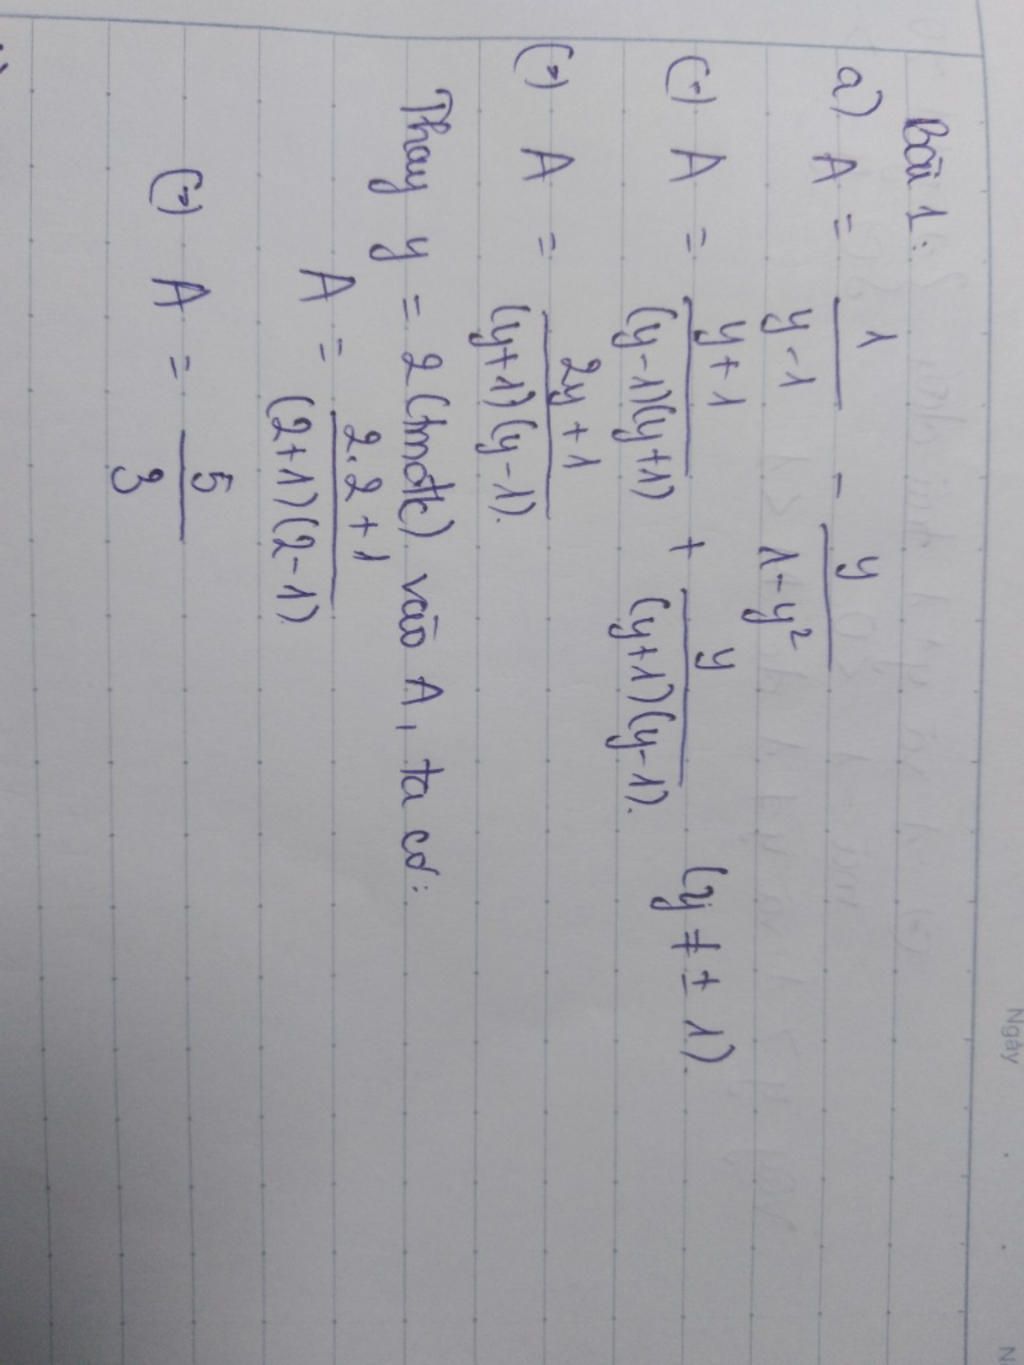 Bài 1:
a) A = 1/(y-1) - y/(1-y²)
(=) A = (y+1)/((y-1)(y+1)) + y/((y+1)(y-1)). (y ≠ ± 1).
(=) A = (2y+1)/((y+1)(y-1)).
Thay y = 2 (tmđk) vào A, ta có:
A = (2.2+1)/((2+1)(2-1)).
(=) A = 5/3
Ngày
N